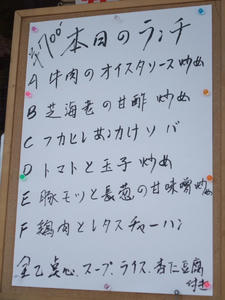 ¥700 本日のランチ
A 牛肉のオイスタソース炒め
B 芝海老の甘酢炒め
C フカヒレあンカけソバ
D トマトと玉子炒め
E 豚モツと長葱の甘味噌炒め
F 鶏肉とレタスチャーハン
全て点心.スープライス.杏仁豆腐
付き